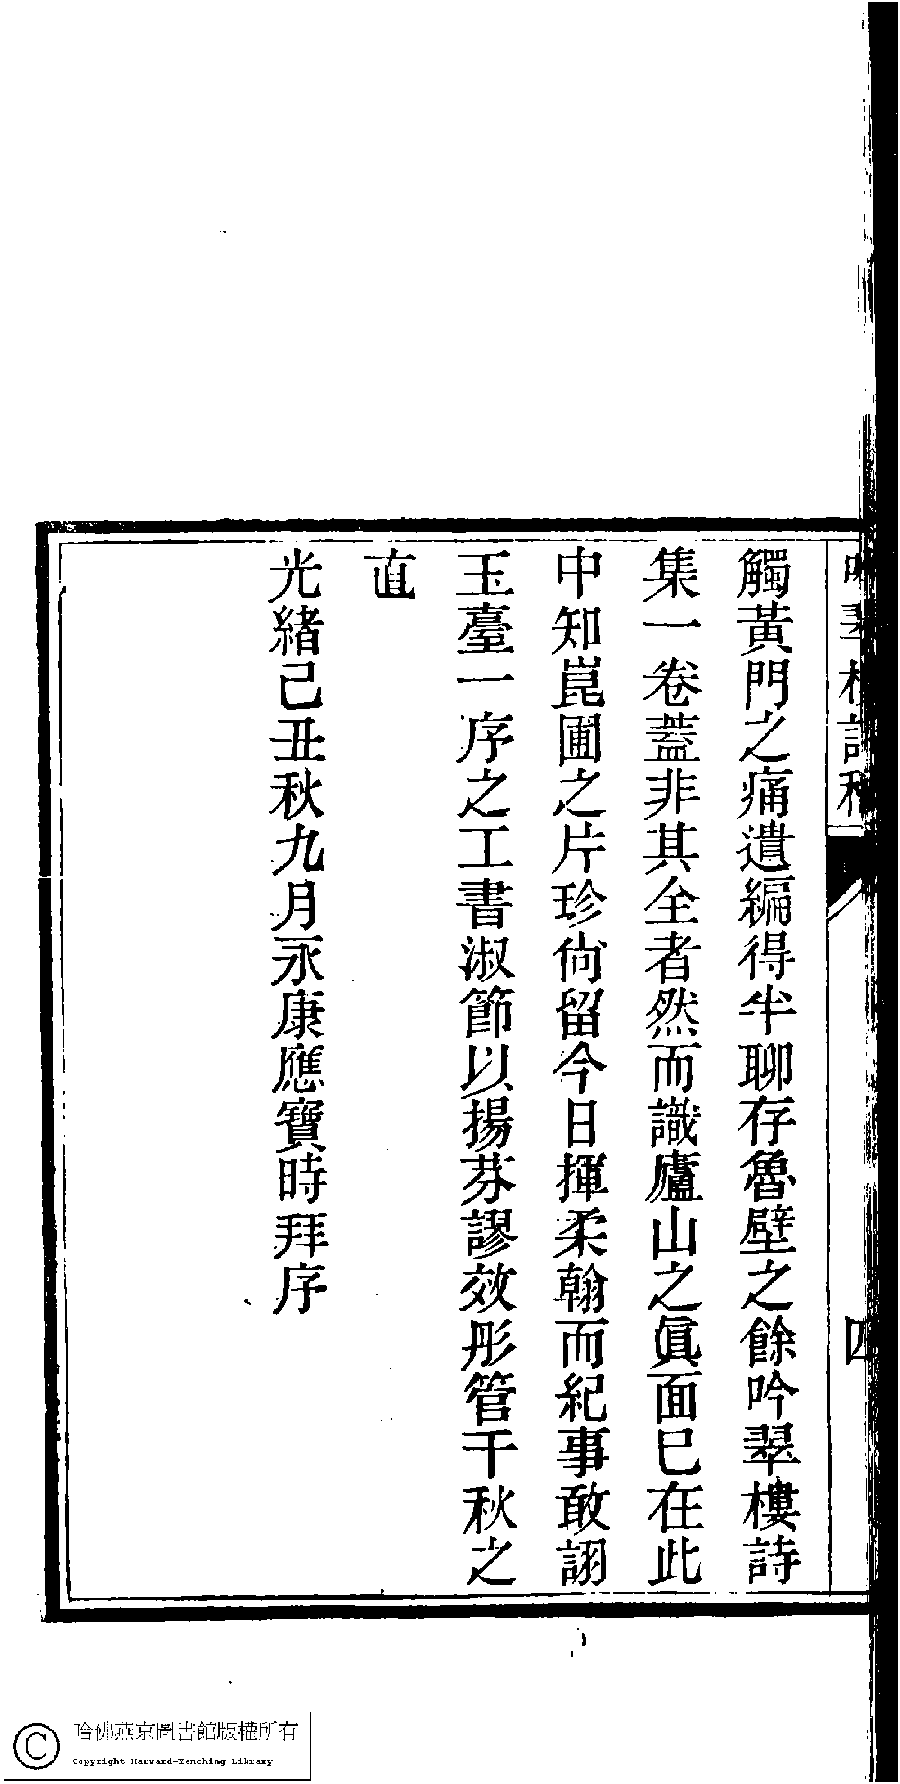 吟翠樓詩稿
四
觸黃門之痛遺編得半聊存魯壁之餘吟翠樓詩
集一卷葢非其全者然而識廬山之眞面巳在此
中知崑圃之片珍尙留今日揮柔翰而紀事敢詡
玉臺一序之工書淑節以揚芬謬效彤管千秋之
直
光緒己丑秋九月永康應寶時拜序
哈佛燕京圖書館版權所有
Copyright Harvard-Yenching Library